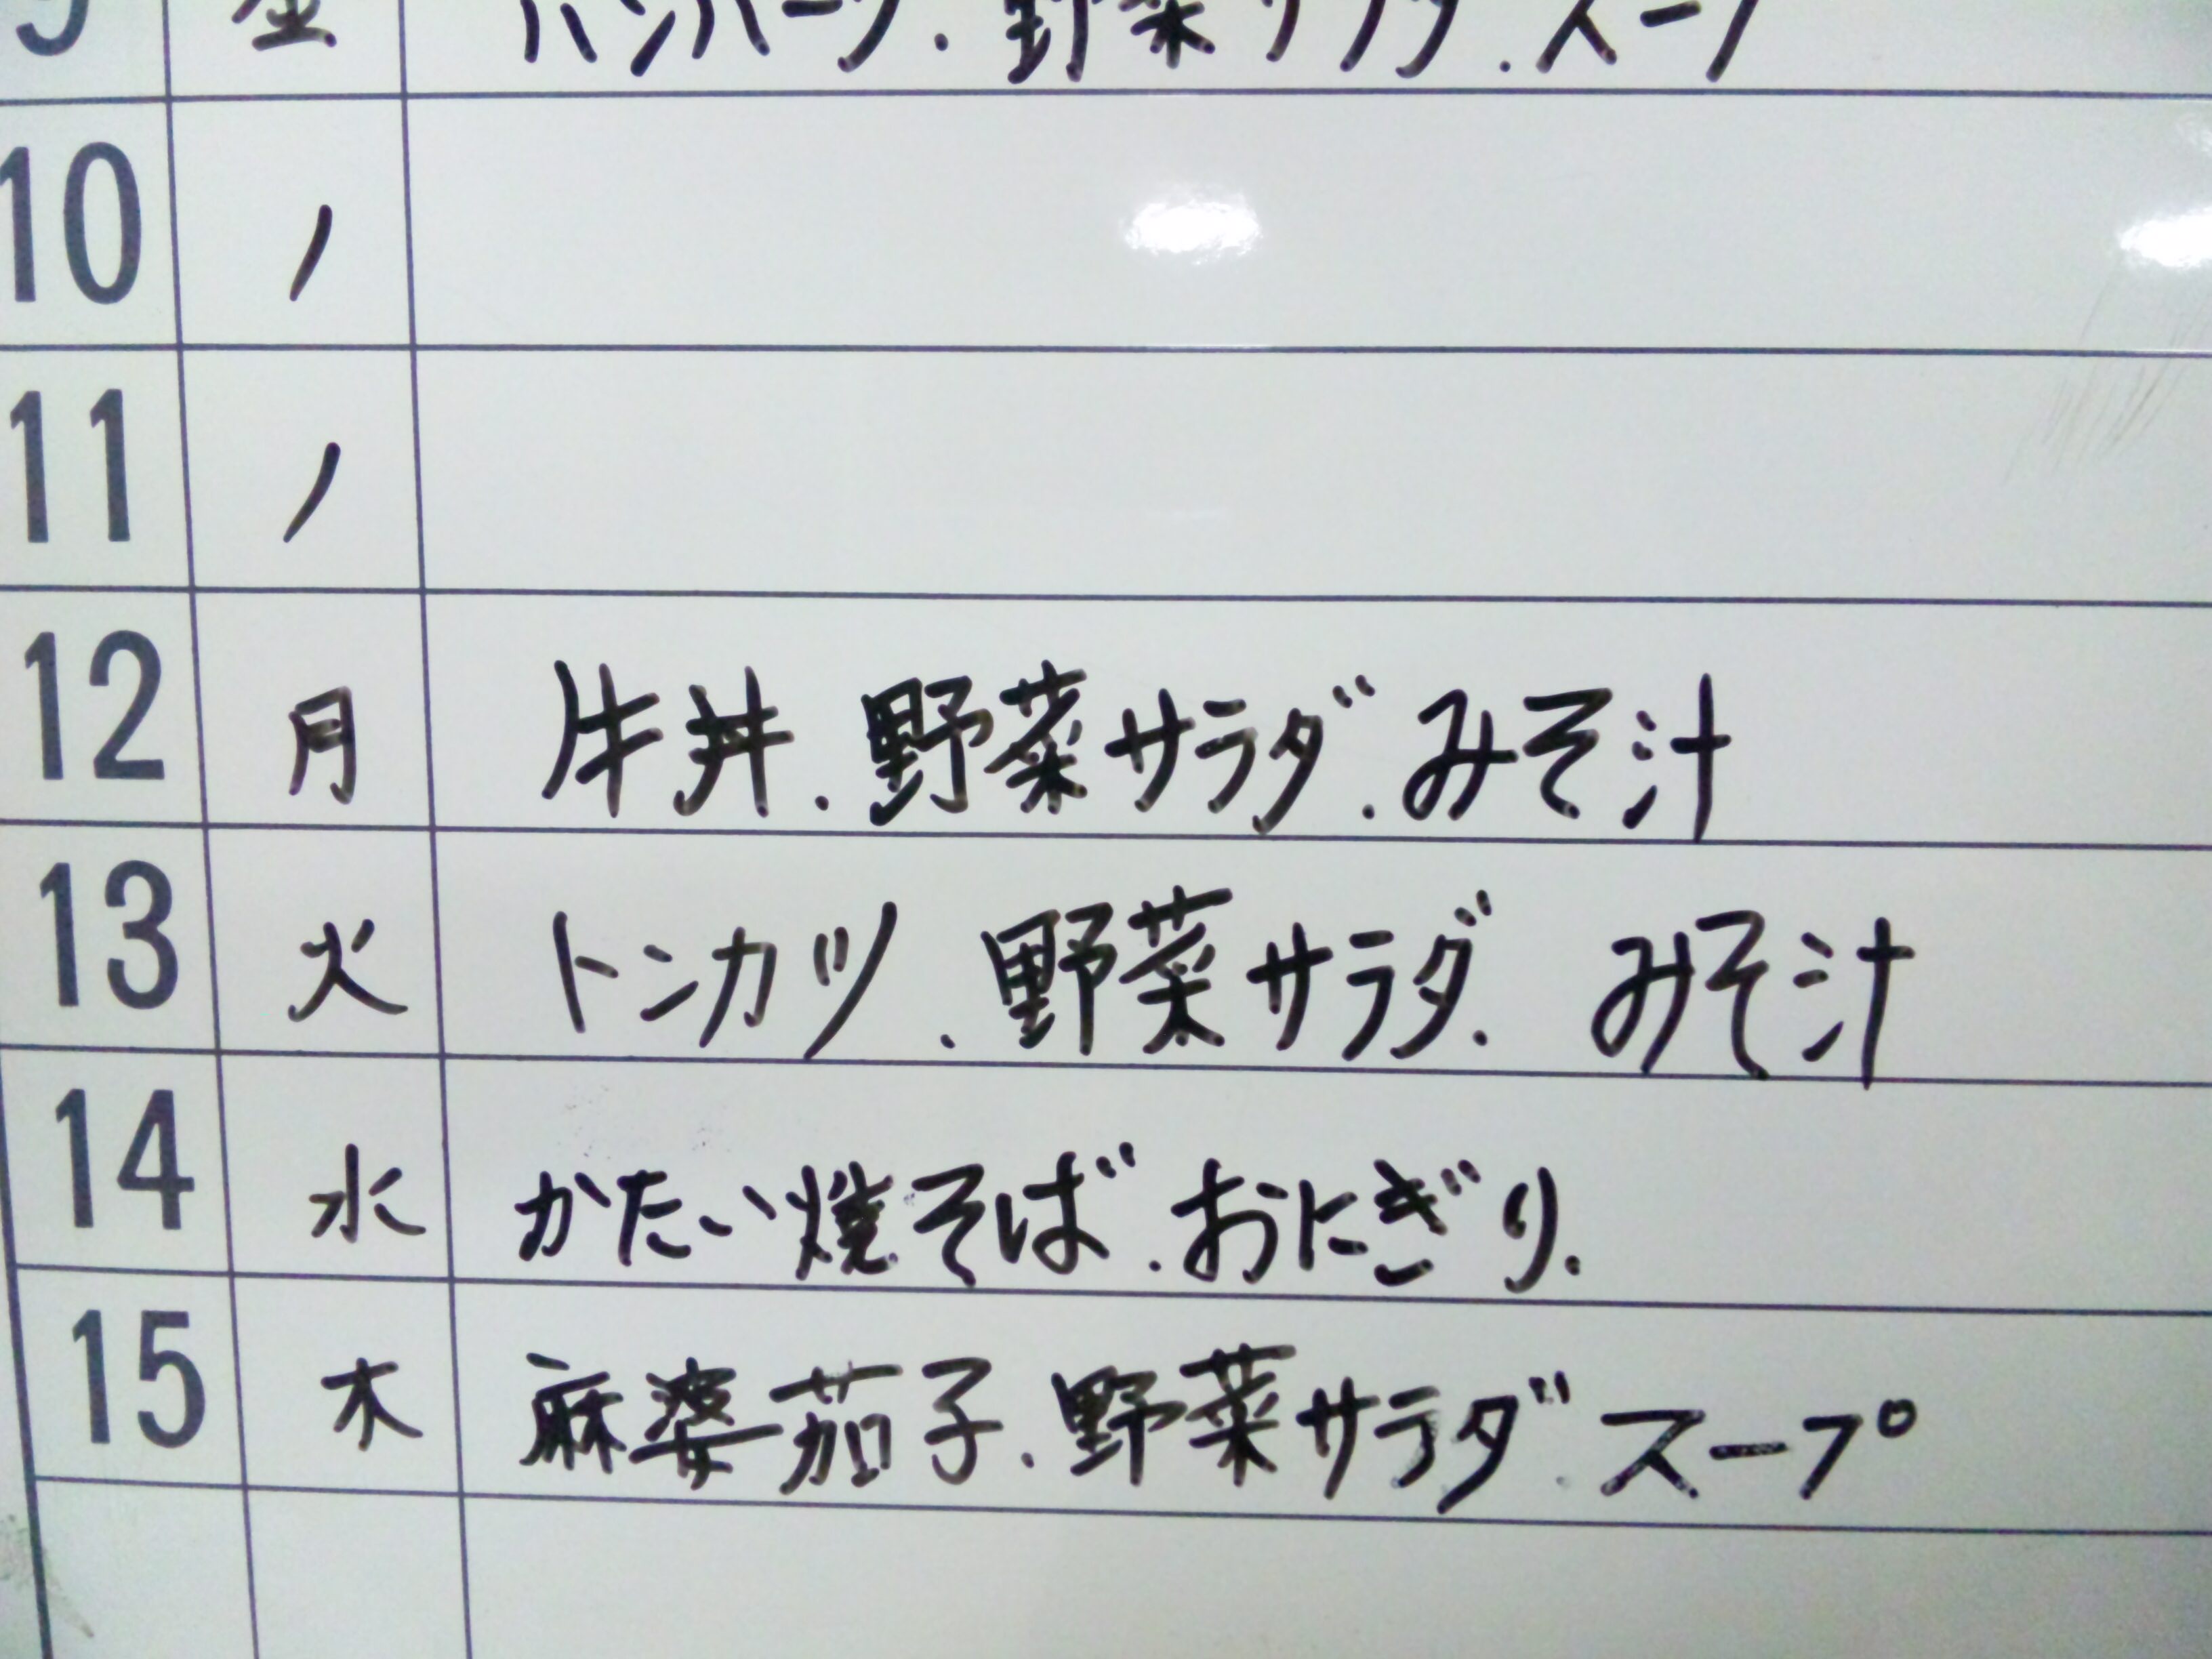 9 金 ハンバーグ.野菜サラダ.スープ
10 ノ
11 ノ
12 月 牛丼.野菜サラダ.みそ汁
13 火 トンカツ.野菜サラダ. みそ汁
14 水 かたい焼そば.おにぎり.
15 木 麻婆茄子.野菜サラダ.スープ